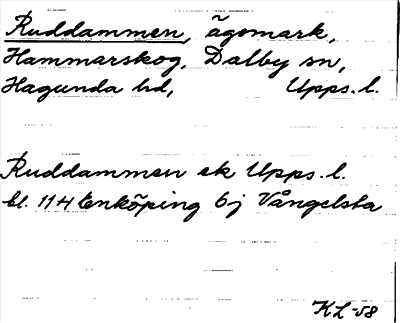 Ruddammen, ägomark,
Hammarskog, Dalby sn,
Hagunda hd, Upps. l.
Ruddammen ek Upps. l.
bl. 114 Enköping 6j Vångelsta
KL -58